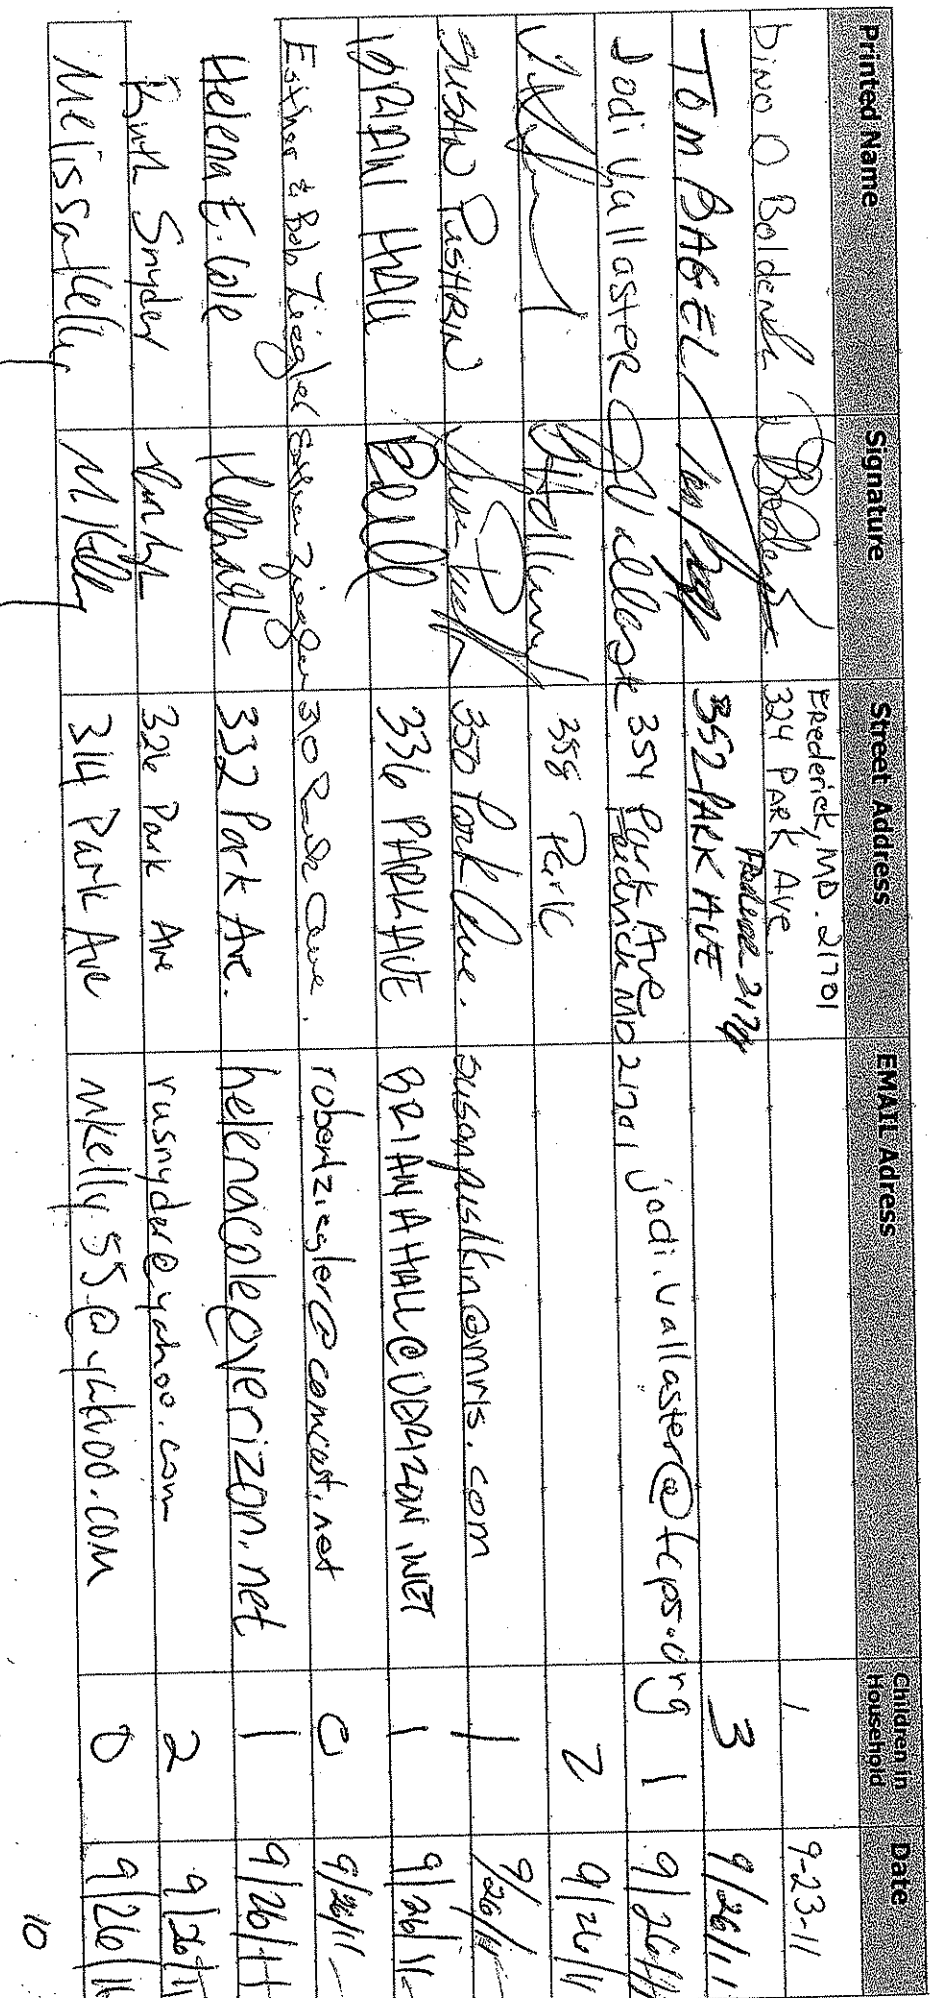 Printed Name Signature Street Address EMAIL Adress Children in Household Date
Dino O Frederick, MD. 21701
324 PARK Ave. 1 9-23-11
Tom BAGEL 352 PARK AVE 3 9/26/11
Jodi Vallaster 354 Park Ave Frederick MD 21701 jodi.vallaster@fcps.org 1 9/26/11
358 Park 2 9/26/11
SUSAN PUSHKIN 350 Park Ave. susanpushkin@mris.com 1 9/26/11
BRIAN HALL 336 PARK AVE BRIANAHALL@VERIZON.NET 1 9/26/11
Esther & Bob Ziegler Esther Ziegler 310 Park Ave. robertziegler@comcast.net 0 9/26/11
Helena E. Cole 332 Park Ave. helenacole@verizon.net 1 9/26/11
Ruth Snyder 326 Park Ave rusnyder@yahoo.com 2 9/26/11
Melissa Kelly M Kelly 314 Park Ave mkelly.55@yahoo.com 0 9/26/11
10